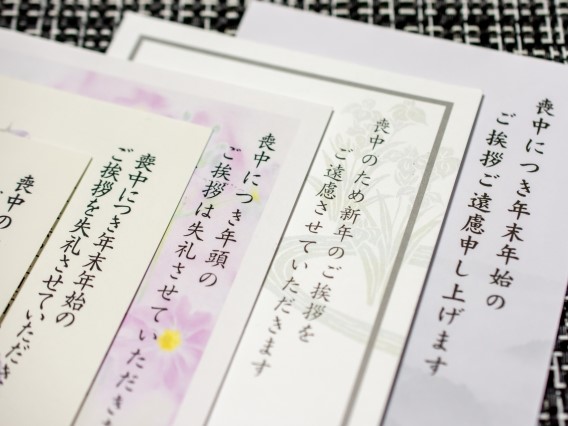 喪中につき年末年始の
ご挨拶ご遠慮申し上げます
喪中のため新年のご挨拶を
ご遠慮させていただきます
喪中につき年頭の
ご挨拶は失礼させていただきま
喪中につき年末年始の
ご挨拶を失礼させていただき
喪中の
ご